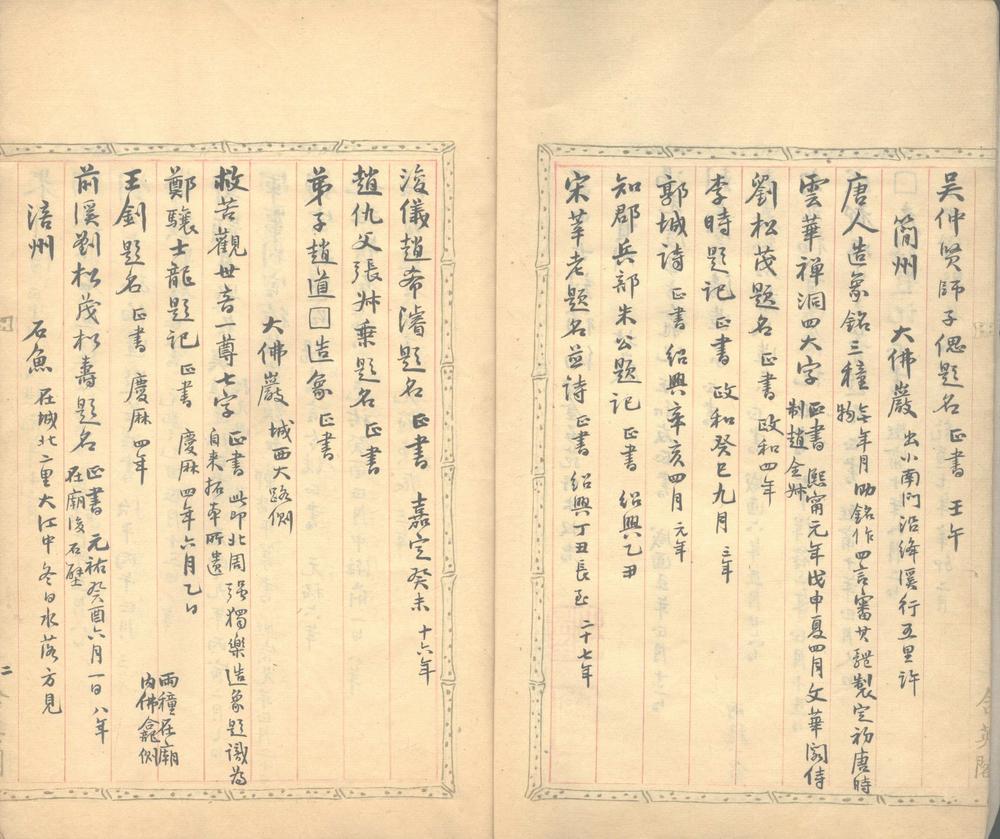 吳仲賢師子偲題名 正書 壬午
簡州 大佛巖 出小南門沿絳溪行五里許
唐人造象銘三種 無年月 銘作四言審其體製定初唐時物
雲華禪洞四大字 正書 熙甯元年戊申夏四月文華閣侍制趙
劉松茂題名 正書 政和四年
李時題記 正書 政和癸巳九月 三年
郭城詩 正書 紹興辛亥四月 元年
知郡兵部朱公題記 正書 紹興乙丑
宋莘老題名並詩 正書 紹興丁丑長至 二十七年
浚儀趙希濬題名 正書 嘉定癸未 十六年
趙仇父張州乘題名 正書
弟子趙道□造象 正書
大佛巖 城西大路側
救苦觀世音一尊七字 正書 此即北周強獨樂造象題識為自來拓本所遺
鄭驤士龍題記 正書 慶厤四年六月乙日
王釗題名 正書 慶厤四年
兩種在廟內佛龕側
前溪劉松茂松壽題名 正書 元祐癸酉六月一日 八年 在廟後石壁
涪州 石魚 在城北二里大江中冬日水落方見
二